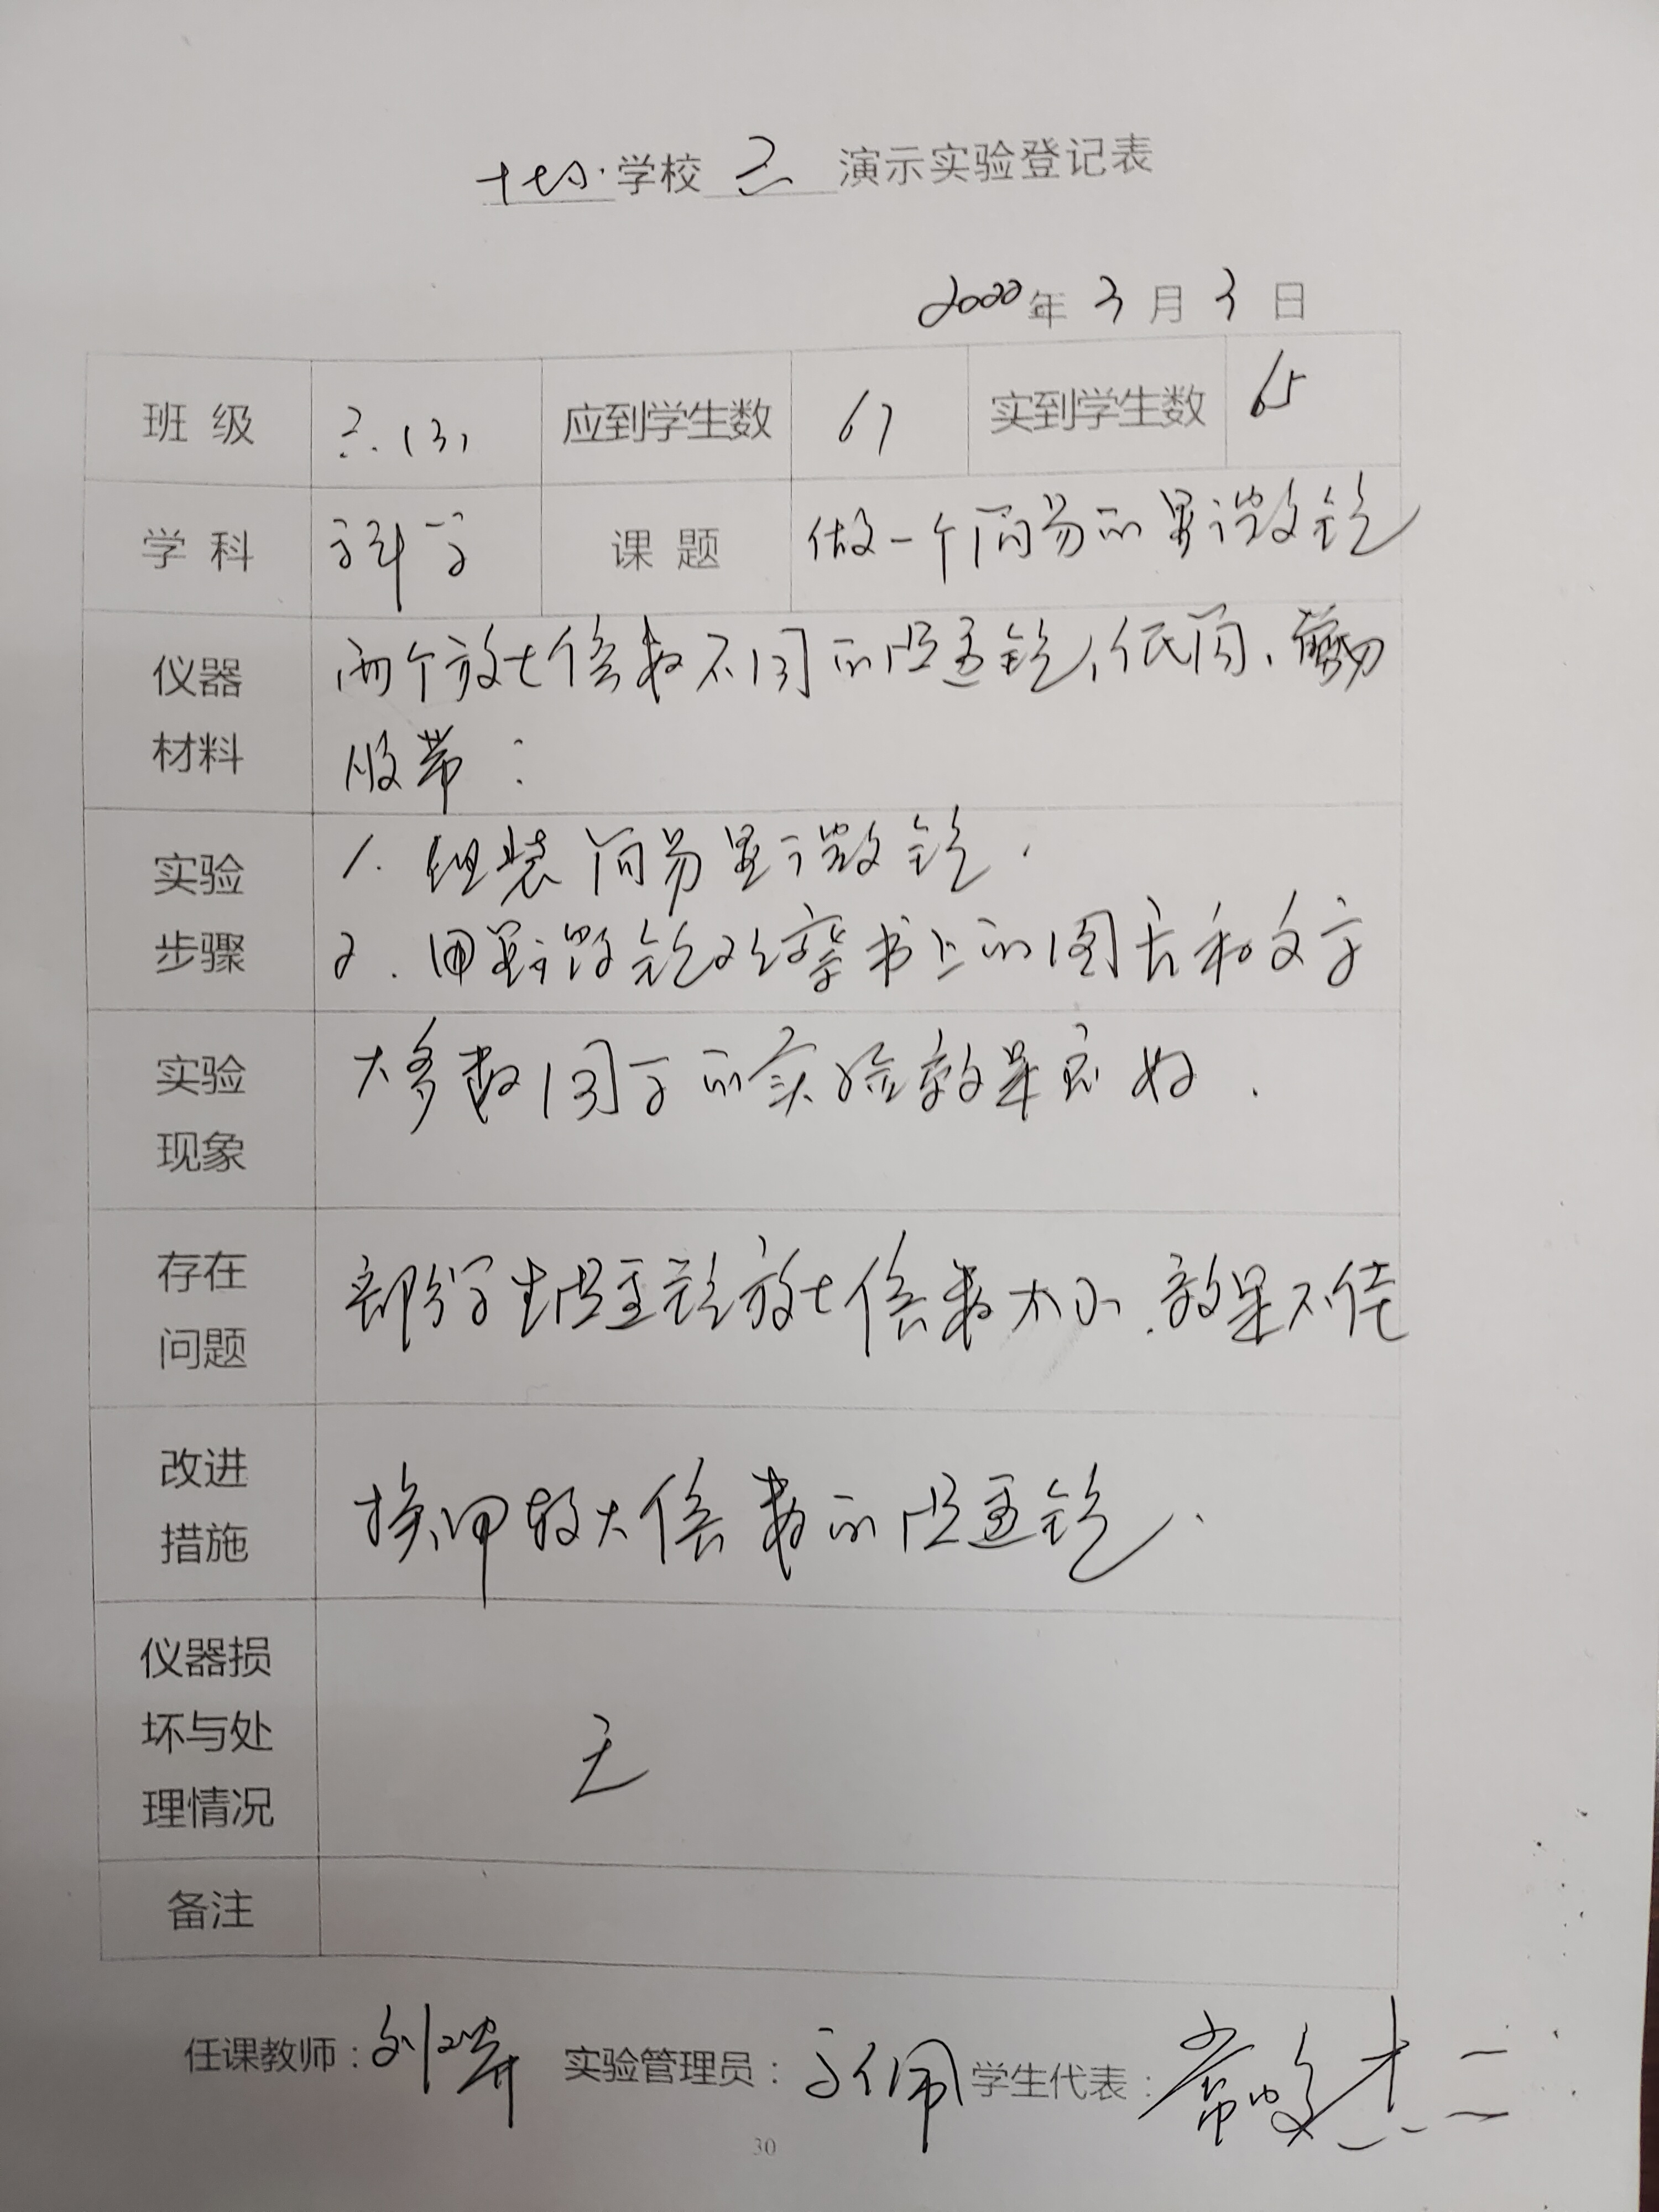 十七小学校 六 演示实验登记表
2022年 3 月 3 日
班 级 六.(3) 应到学生数 67 实到学生数 65
学 科 科学 课 题 做一个简易的显微镜
仪器材料 两个放大倍数不同的凸透镜,纸筒、剪刀
胶带:
实验步骤 1. 组装简易显微镜.
2. 用显微镜观察书上的图片和文字
实验现象 大多数同学的实验效果良好.
存在问题 部分学生凸透镜放大倍数太小.效果不佳
改进措施 换用较大倍数的凸透镜.
仪器损坏与处理情况 无
备注
任课教师: 实验管理员: 于佩 学生代表:
30